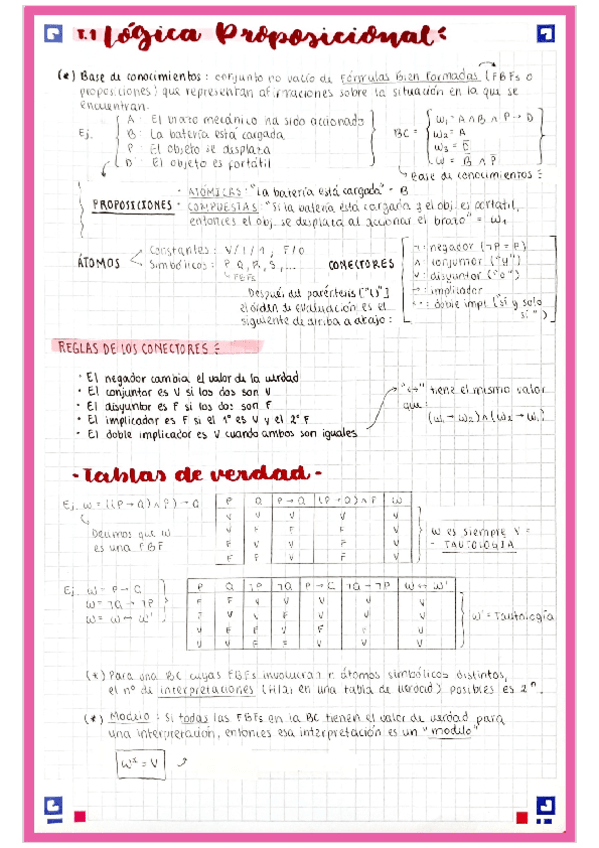 T.1 Lógica Proposicional:
(*) Base de conocimientos: conjunto no vacío de fórmulas bien formadas (FBFs o
proposiciones) que representan afirmaciones sobre la situación en la que se
encuentran.
Ej.
A: El brazo mecánico ha sido accionado
B: La batería está cargada
P: El objeto se desplaza
D: El objeto es portátil
BC =
w₁ = A ∧ B ∧ P → D
w₂ = A
Base de conocimientos
PROPOSICIONES
· ATÓMICAS: "La batería está cargada" - B
· COMPUESTAS: "Si la batería está cargada y el obj. es portátil,
entonces el obj. se desplaza al accionar el brazo" = w₁
ÁTOMOS
Constantes: V/1/, F/0
Simbólicos: P, Q, R, S, ...
FBFs
CONECTORES
¬: negador (¬P = P̄)
∧: conjuntor ("y")
∨: disyuntor ("o")
→: implicador
↔: doble impl. ("sí y solo
sí")
Después del paréntesis ["()"]
el orden de evaluación es el
siguiente de arriba a abajo:
REGLAS DE LOS CONECTORES:
· El negador cambia el valor de la verdad
· El conjuntor es V si los dos son V
· El disyuntor es F si los dos son F
· El implicador es F si el 1º es V y el 2º F
· El doble implicador es V cuando ambos son iguales
"↔" tiene el mismo valor
que:
(w₁ → w₂) ∧ (w₂ → w₁)
-Tablas de verdad-
Ej. w = ((P → Q) ∧ P) → Q
Decimos que w
es una FBF
P Q P → Q (P → Q) ∧ P w
V V V V V
F V V F V
F F V F V
w es siempre V =
- TAUTOLOGIA
Ej. w = P → Q
w' = ¬Q → ¬P
w = w ↔ w'
P Q ¬P ¬Q P → Q ¬Q → ¬P w ↔ w'
F F V V V V V
F V V F V V V
V F F V F F V
V V F F V V V
w' = Tautología
(*) Para una BC cuyas FBFs involucran n átomos simbólicos distintos,
el nº de interpretaciones en una tabla de verdad posibles es 2ⁿ.
(*) Modulo: Si todas las FBFs en la BC tienen el valor de verdad para
una interpretación, entonces esa interpretación es un "modulo"
= V